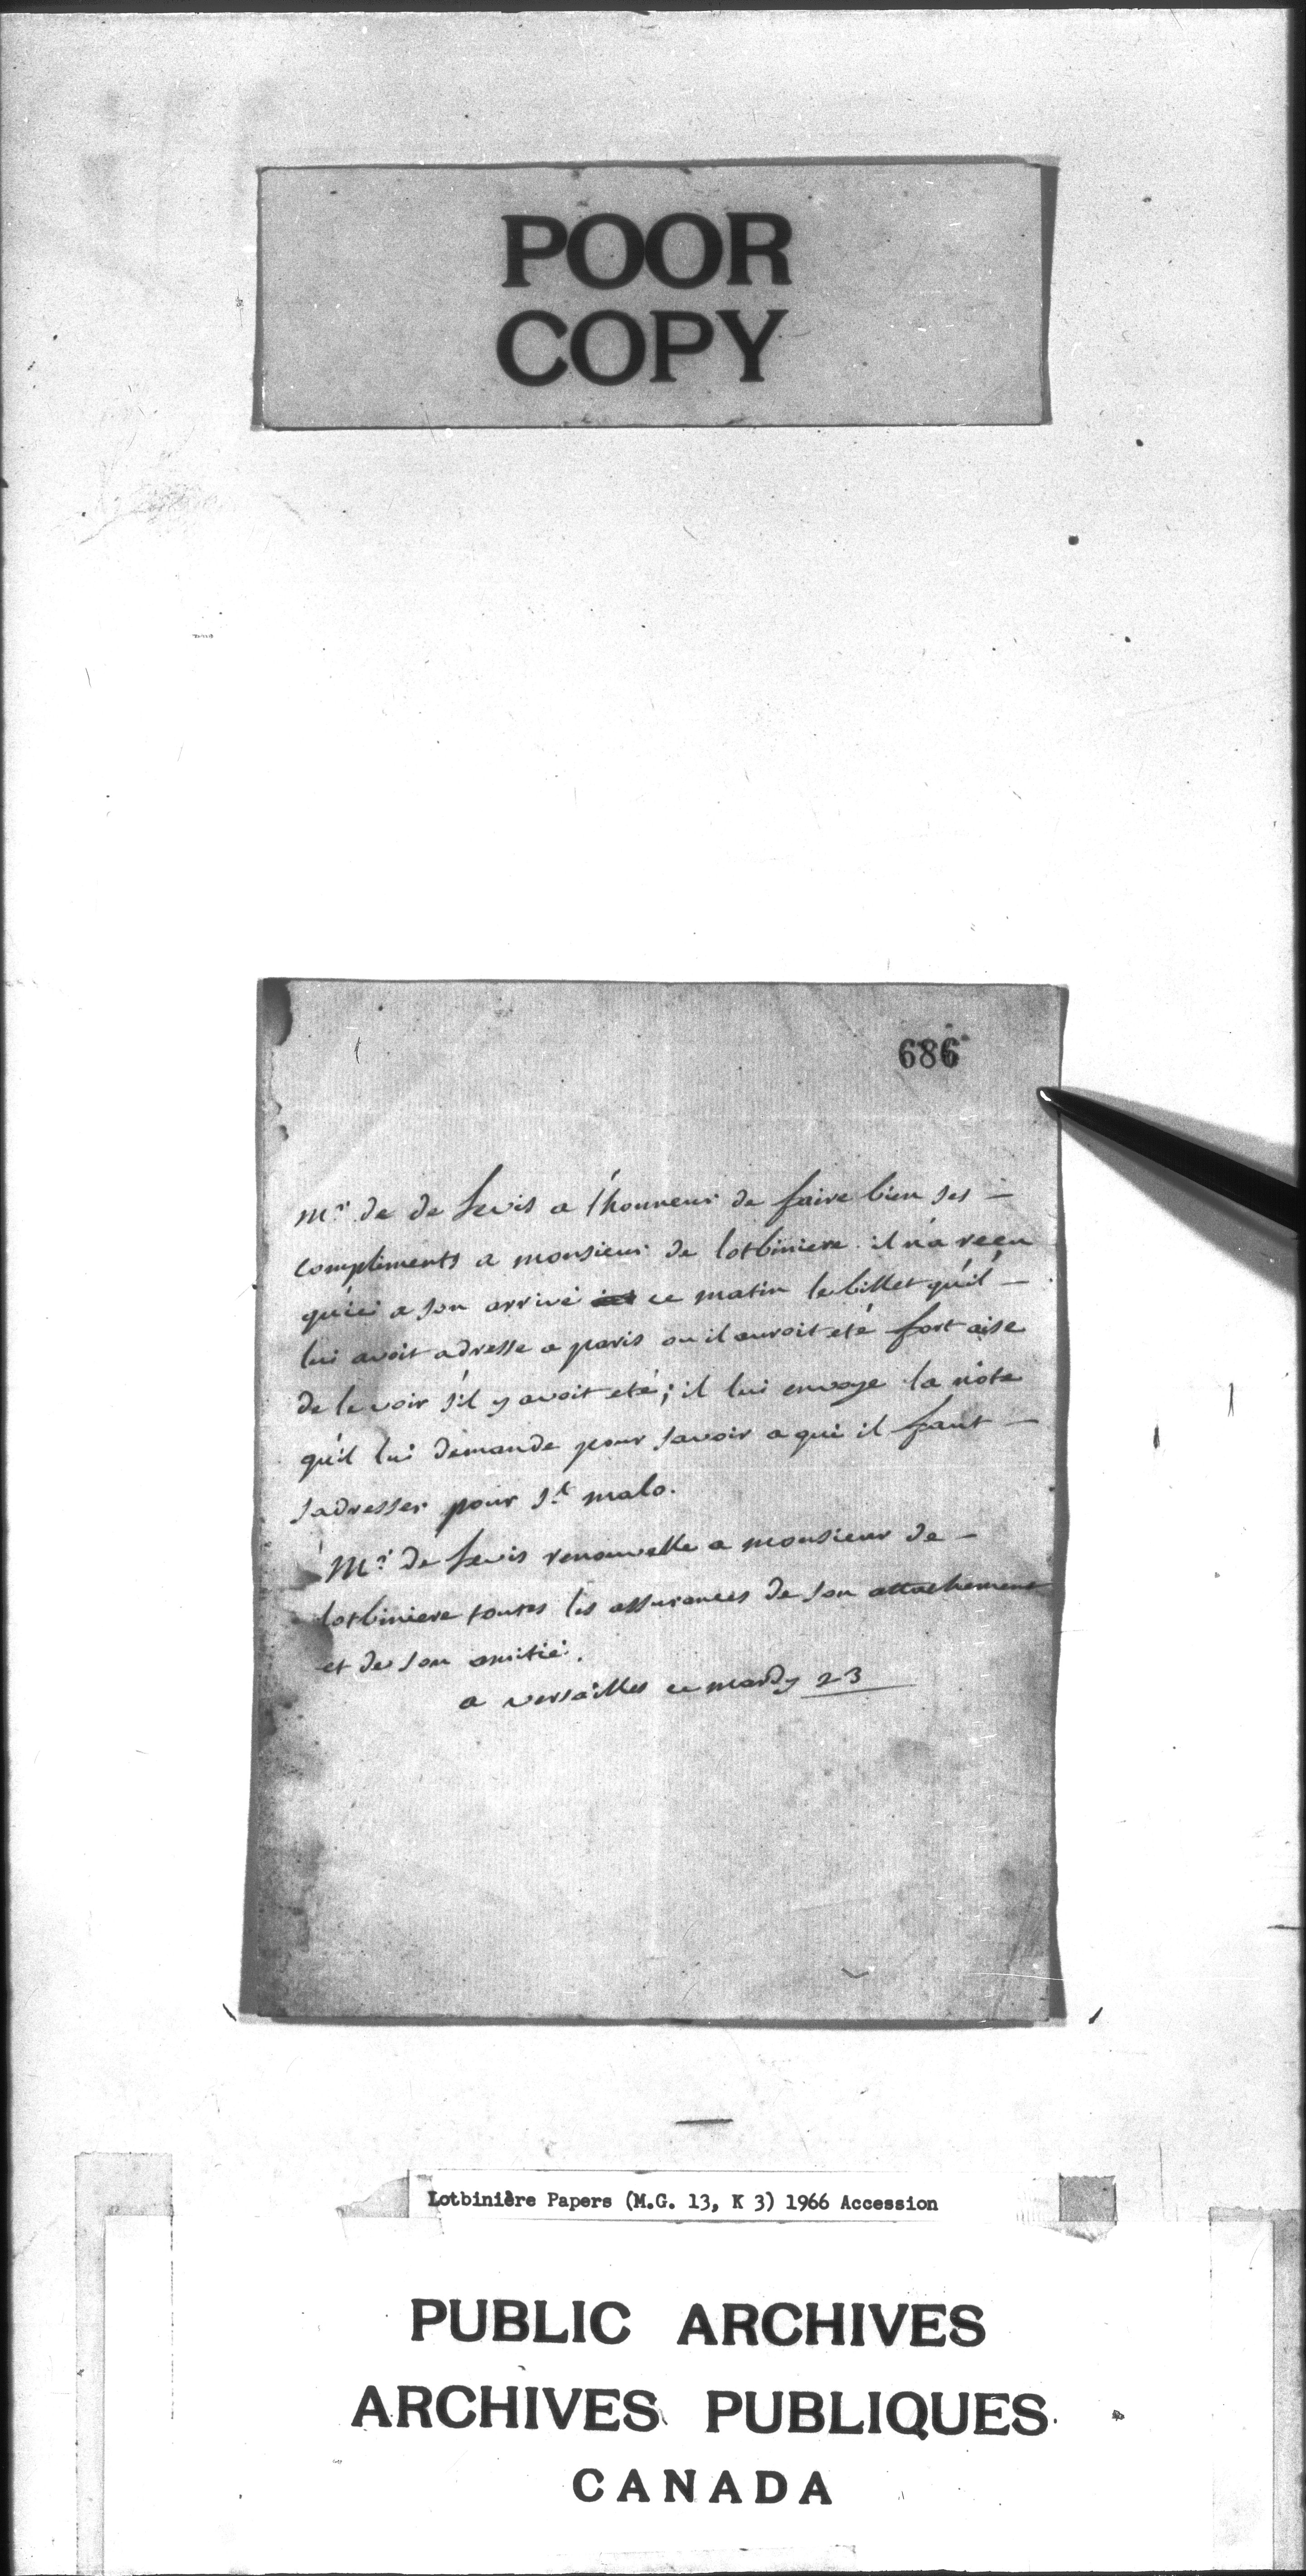 POOR
COPY
686
Mr. de de Levis a l'honneur de faire bien ses –
compliments a monsieur de lotbiniere il n'a recu
qu'ici a son arrivé ce matin le billet qu'il –
lui avoit adresse a paris ou il auroit eté fort aise
de le voir s'il y avoit eté; il lui envoye la note
qu'il lui demande pour savoir a qui il faut –
s'adresser pour St malo.
Mr. de Levis renouvelle a monsieur de –
lotbiniere toutes les assurances de son attachement
et de son amitié.
a versailles ce mardy 23
Lotbinière Papers (M.G. 13, K 3) 1966 Accession
PUBLIC ARCHIVES
ARCHIVES PUBLIQUES
CANADA